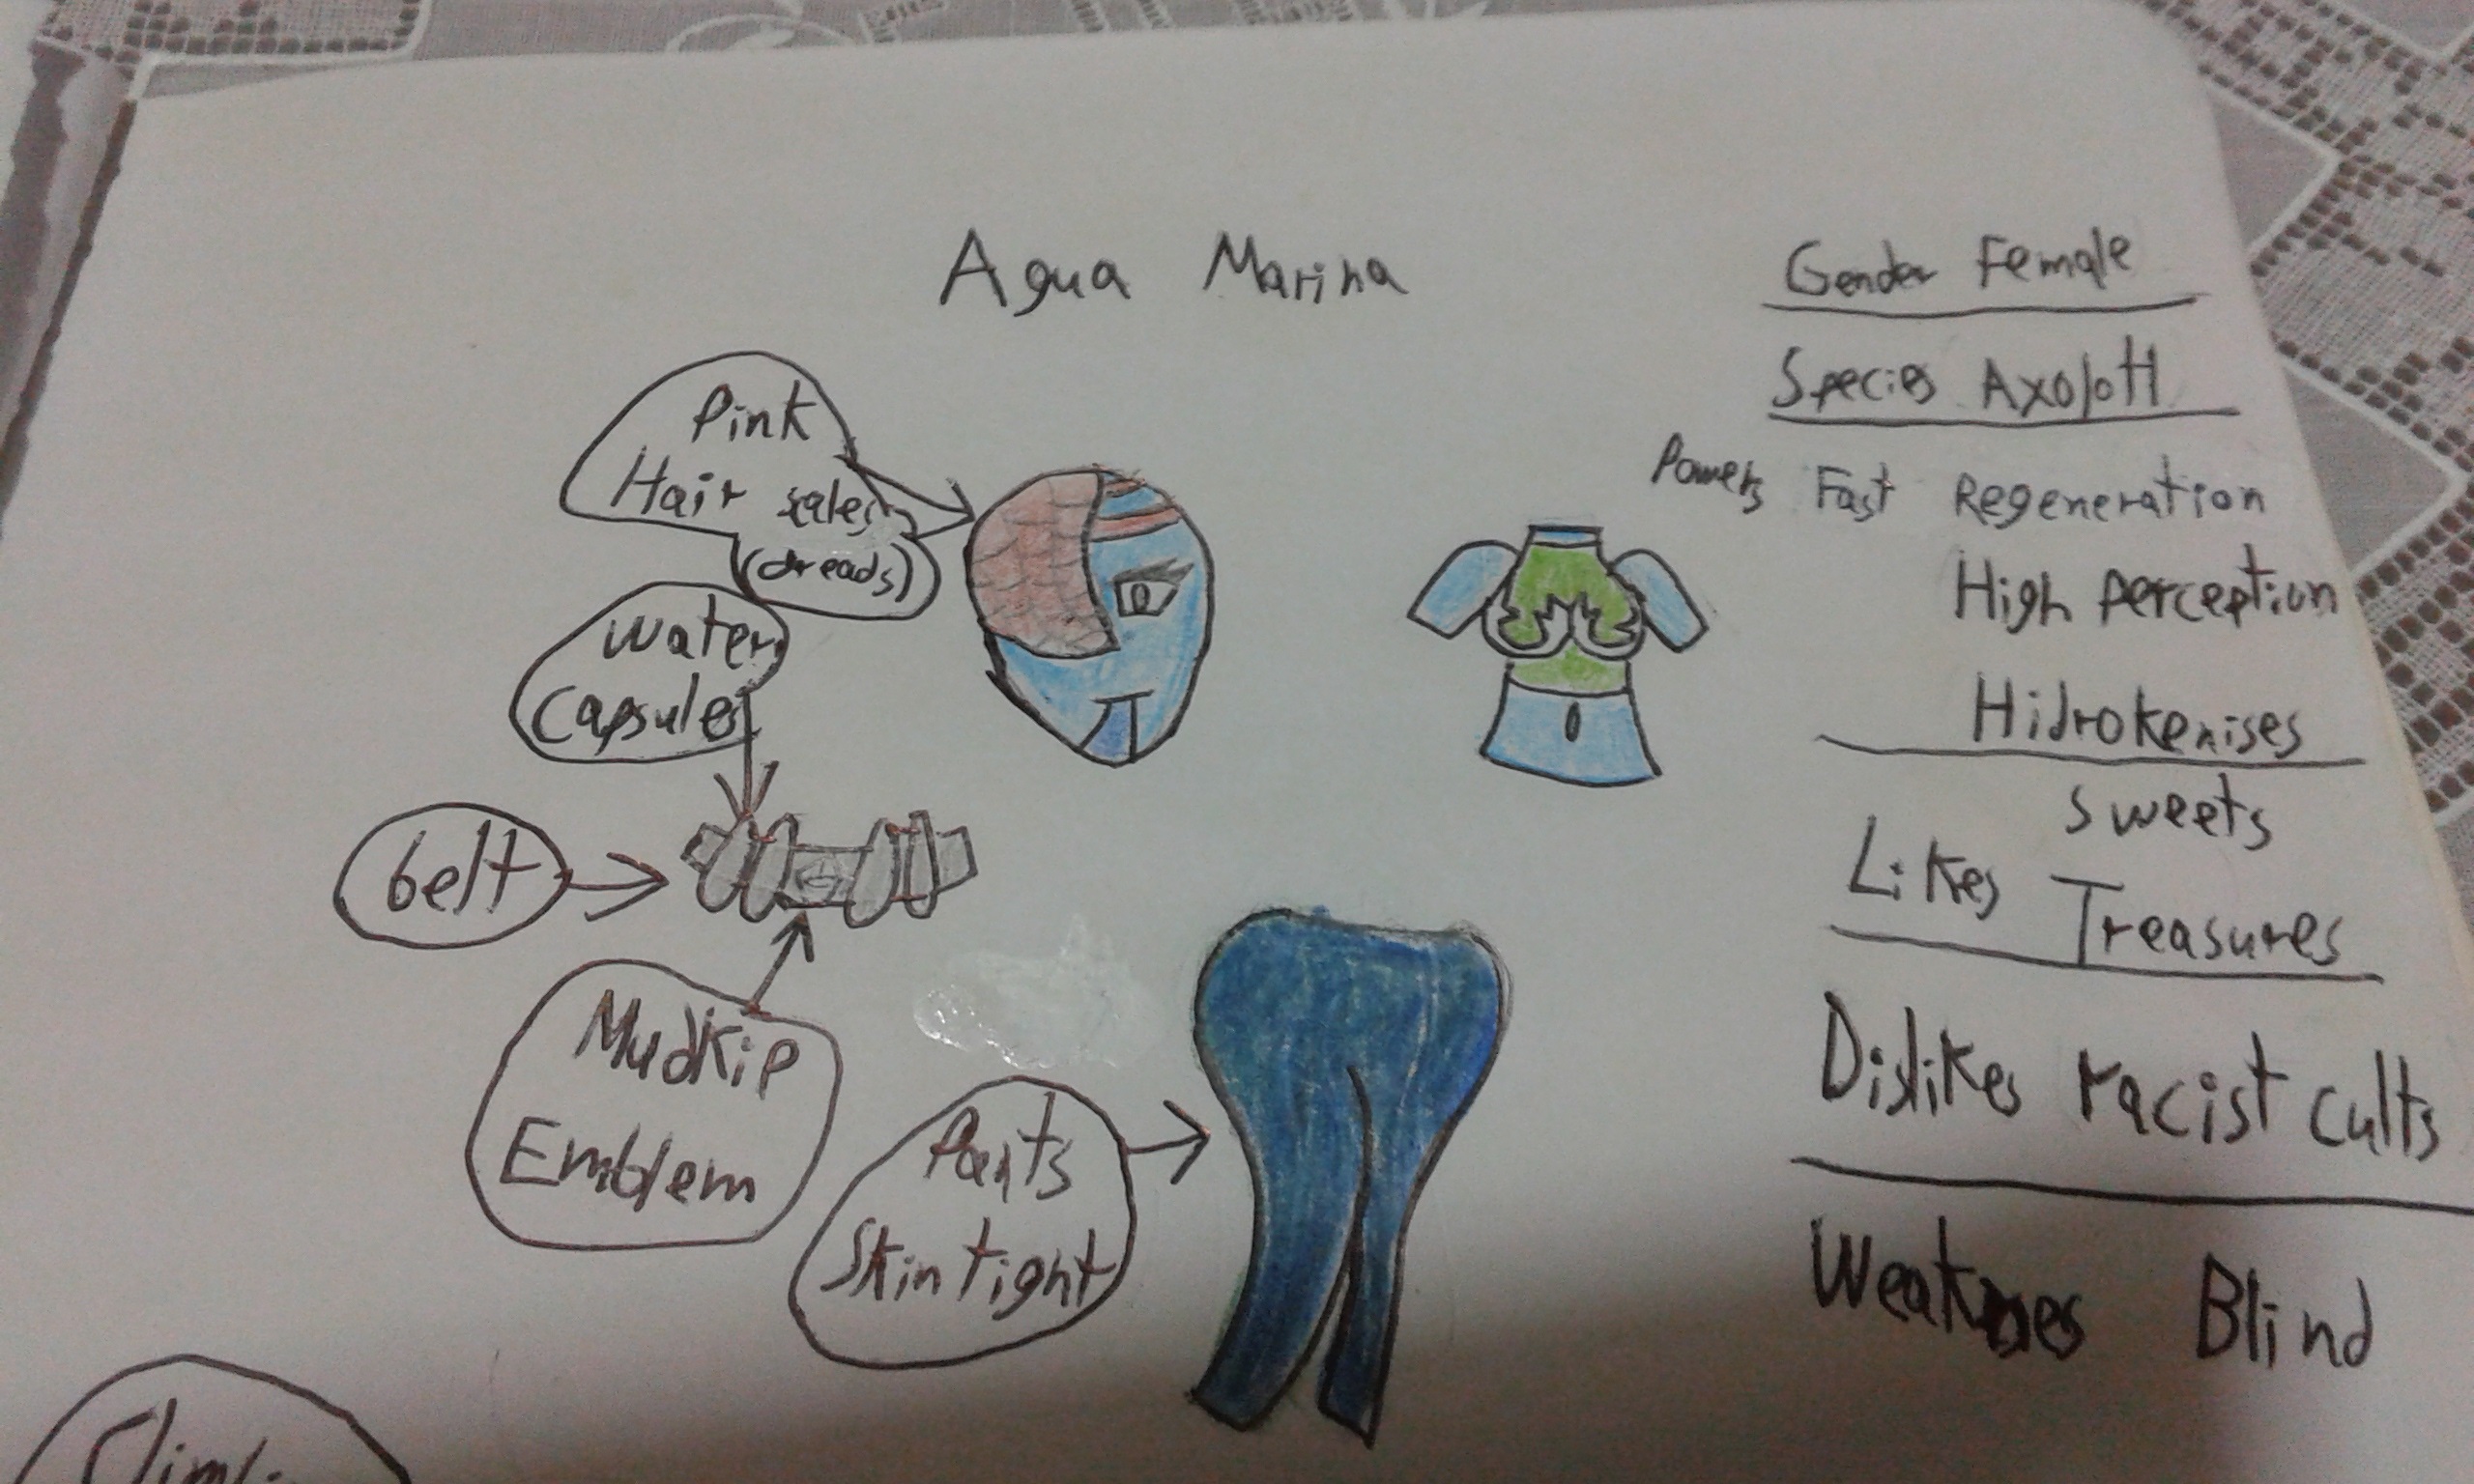 Agua Marina
Pink
Hair scales
(dreads)
water
capsules
belt
Mudkip
Emblem
Pants
Skin tight
Gender Female
Species Axolotl
Powers Fast Regeneration
High perception
Hidrokenises
Likes Sweets
Treasures
Dislikes racist cults
Weaknes Blind